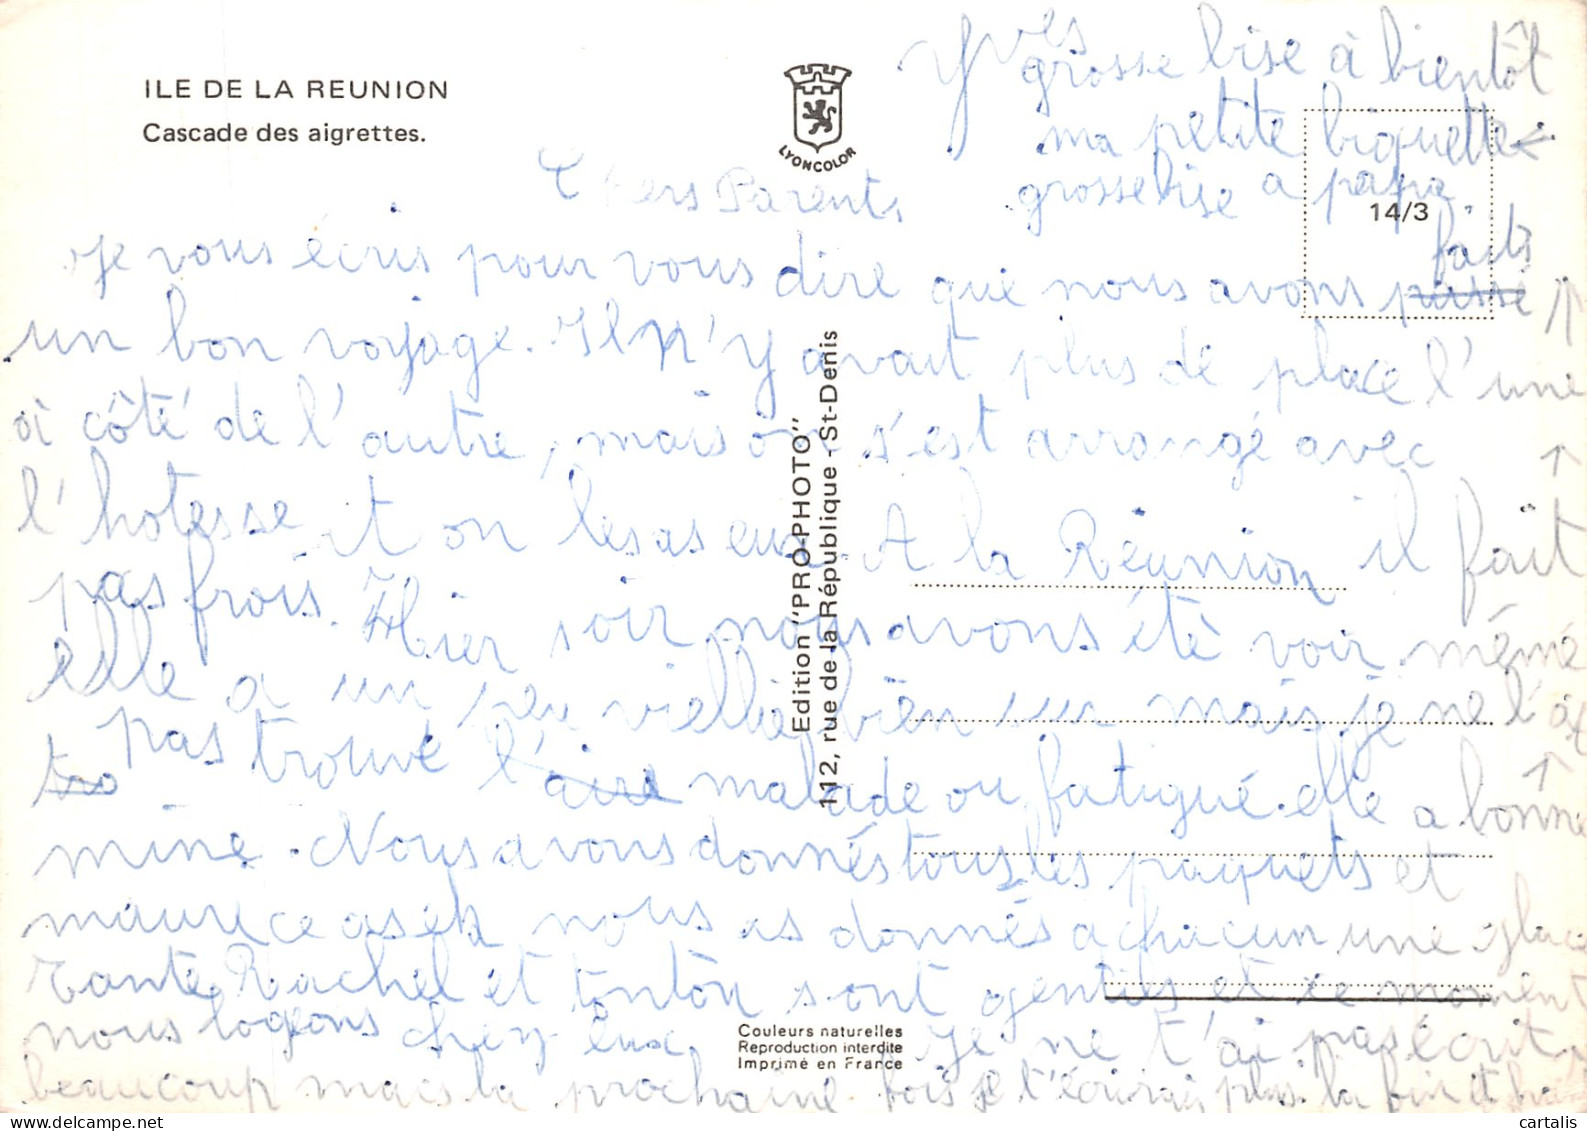 ILE DE LA REUNION
Cascade des aigrettes.
LYONCOLOR
14/3
Chers Parents
Je vous écris pour vous dire que nous avons passé faits
un bon voyage. Il n'y avait plus de place l'une
à côté de l'autre, mais on s'est arrangé avec
l'hotesse et on les as eux. A la Réunion il fait
pas frois. Hier soir nous avons étè voir mémé
elle a un peu vieillie bien sur mais je ne l'ai
tro pas trouvé l'aire malade ou fatigué. elle a bonne
mine. Nous avons donnés tous les paquets et
maurice nous as donnés a chacun une glace
Tante Rachel et tonton sont gentils et ce moment
nous logeons chez eux. Je ne t'ai pas écrit
beaucoup mais la prochaine fois je t'écrirai plus. la
Yves
grosse bise à bientôt
ma petite biquette
grosse bise a papa
Edition "PRO-PHOTO"
112, rue de la République - St-Denis
Couleurs naturelles
Reproduction interdite
Imprimé en France
cartalis